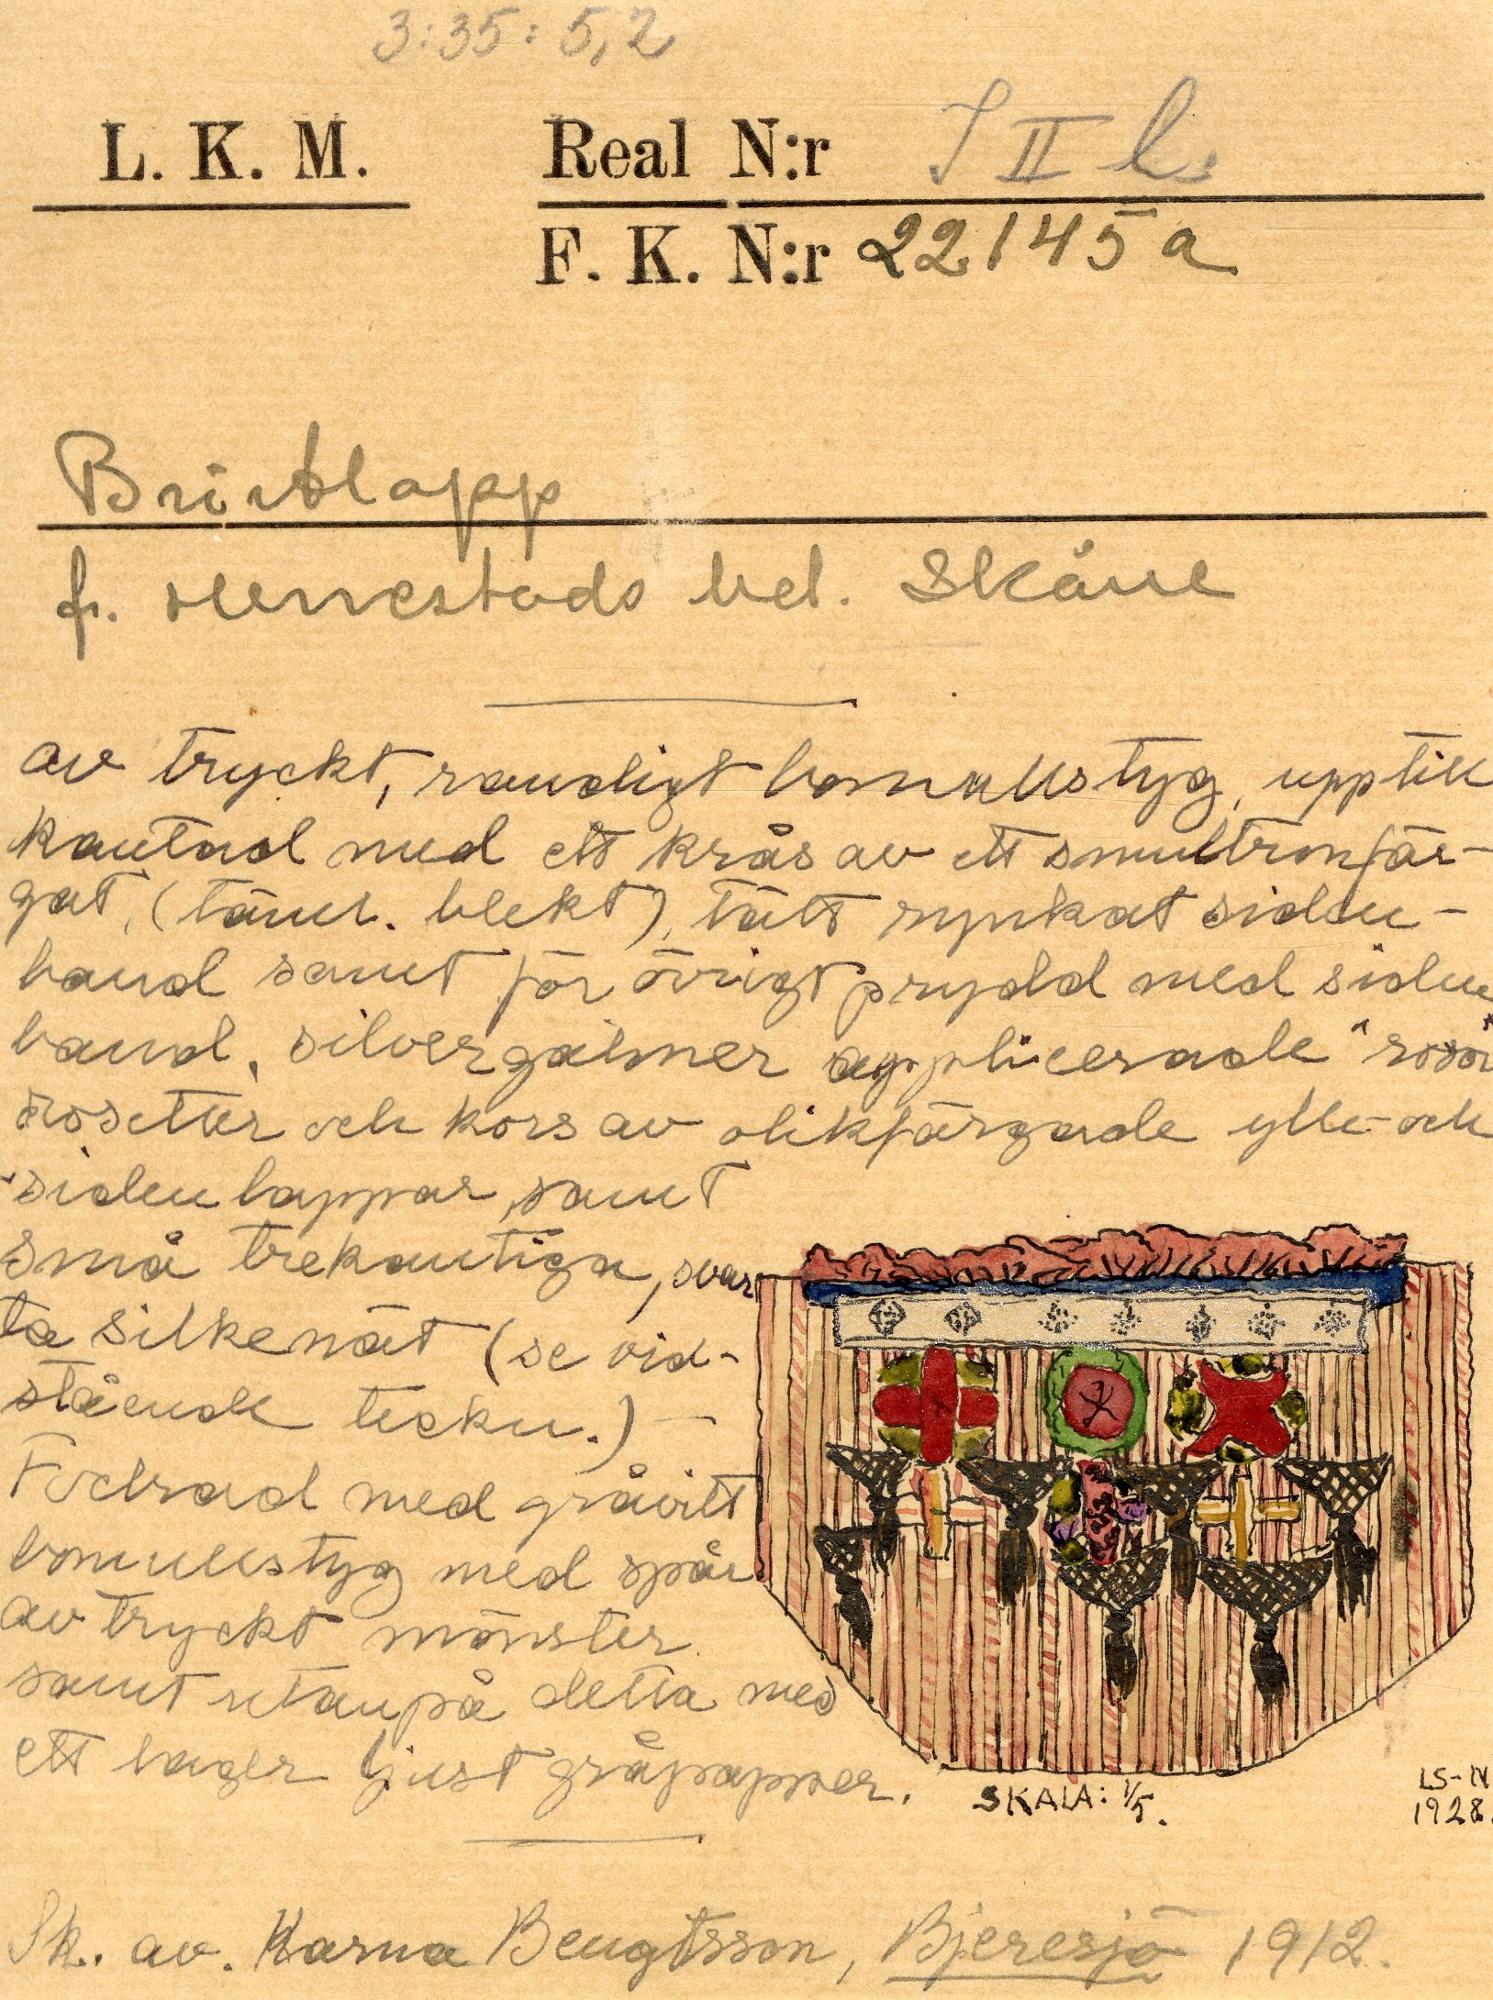 3:35: 5,2
L. K. M. Real N:r I II b.
F. K. N:r 22145 a
Bröstlapp
fr. Herrestads hd. Skåne
av tryckt, randigt bomullstyg, upptill
kantad med ett krås av ett smultronfär-
gat, (täml. blekt), tätt rynkat siden-
band samt för övrigt prydd med siden
band, silvergaloner applicerade "rosor"
rosetter och kors av olikfärgade ylle- och
siden lappar, samt
små trekantiga, svar
ta silkenät (se vid-
stående teckn.) —
Fodrad med gråvitt
bomullstyg med spår
av tryckt mönster
samt utanpå detta med
ett lager ljust gråpapper.
SKALA: 1/5.
LS-N
1928.
Sk. av. Karna Bengtsson, Bjeresjö 1912.